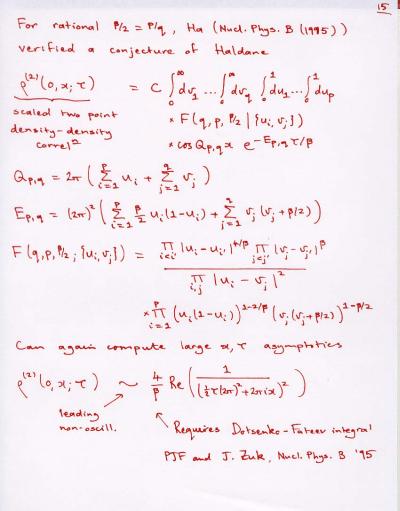 15
For rational β/2 = p/q, Ha (Nucl. Phys. B (1995))
verified a conjecture of Haldane
ρ^(2)(0,x;τ) = C ∫_0^∞ dv_1 ... ∫_0^∞ dv_q ∫_0^1 du_1 ... ∫_0^1 du_p
scaled two point × F(q,p,β/2 | {u_i,v_j})
density-density
correlⁿ × cos Q_{p,q} x e^{-E_{p,q} τ/β}
Q_{p,q} = 2π ( Σ_{i=1}^p u_i + Σ_{j=1}^q v_j )
E_{p,q} = (2π)^2 ( Σ_{i=1}^p β/2 u_i(1-u_i) + Σ_{j=1}^q v_j(v_j+β/2) )
F(q,p,β/2; {u_i,v_j}) = ∏_{i<i'} |u_i-u_{i'}|^{4/β} ∏_{j<j'} |v_j-v_{j'}|^β
∏_{i,j} |u_i - v_j|^2
× ∏_{i=1}^p (u_i(1-u_i))^{1-2/β} (v_j(v_j+β/2))^{1-β/2}
Can again compute large x,τ asymptotics
ρ^(2)(0,x;τ) ~ 4/β Re( 1/((½τ(2π)^2+2πix)^2) )
leading
non-oscill.
Requires Dotsenko-Fateev integral
PJF and J. Zuk, Nucl. Phys. B '95